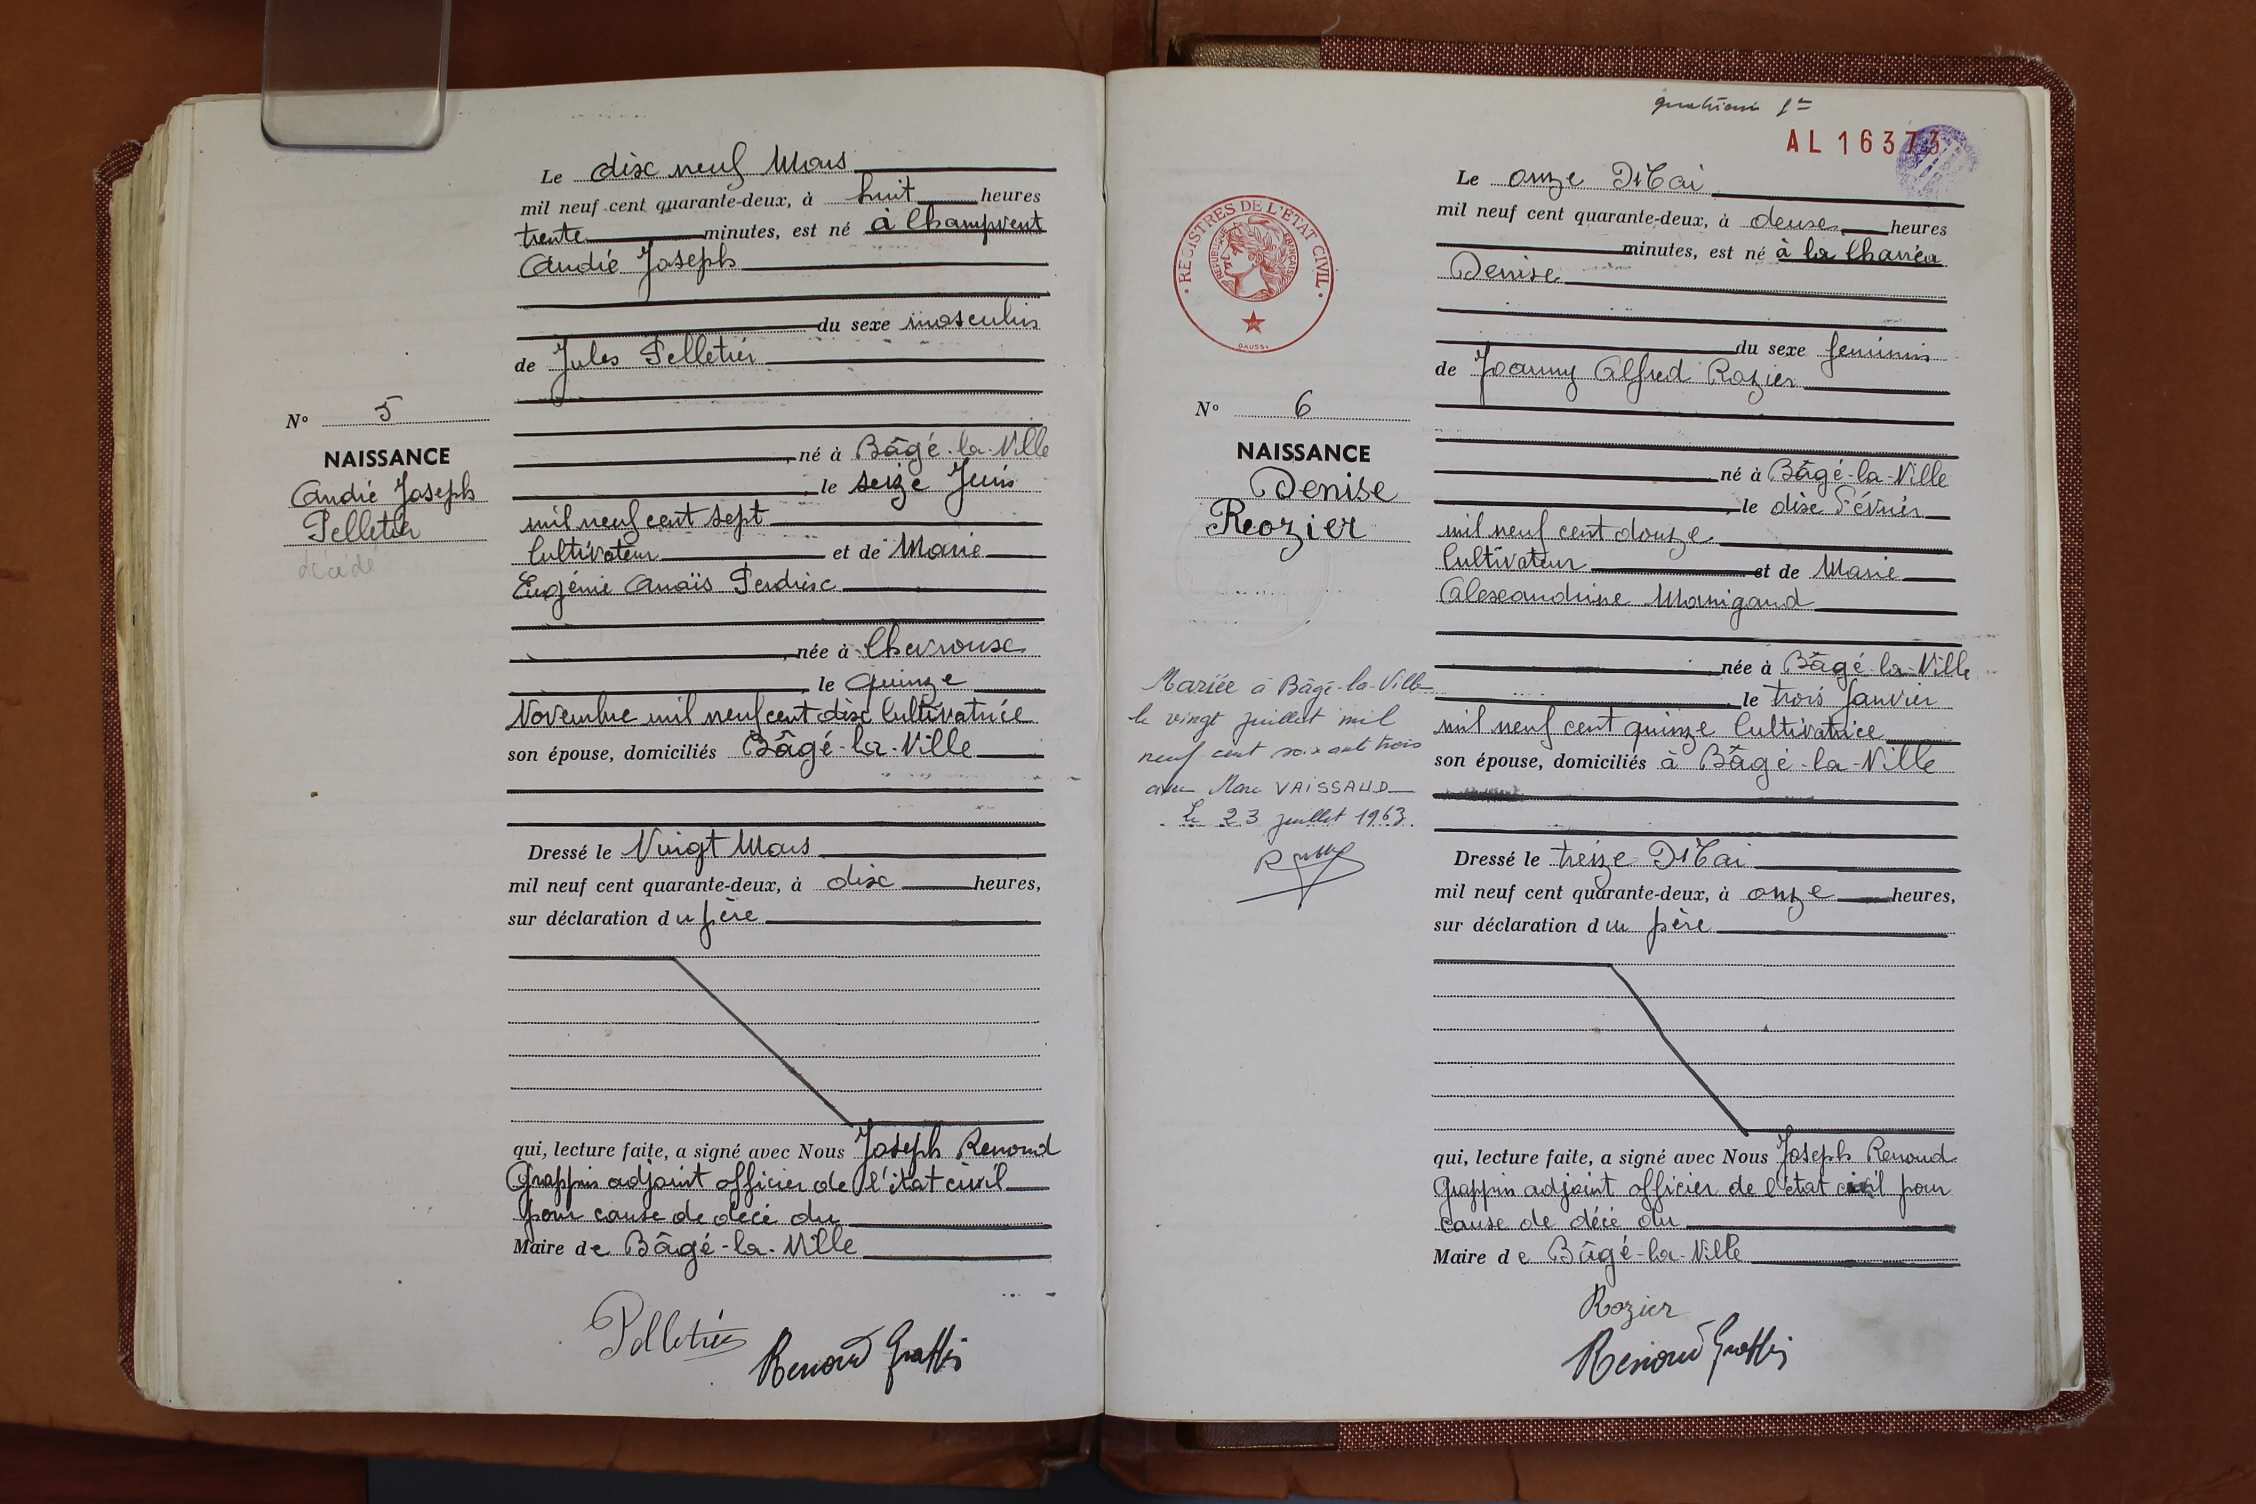 Le dix neuf Mars
mil neuf cent quarante-deux, à huit heures
trente minutes, est né à Champvent
André Joseph
du sexe masculin
de Jules Pelletier
né à Bâgé-la-Ville
, le seize Juin
mil neuf cent sept
Cultivateur et de Marie
Eugénie Anaïs Perdrix
, née à Chevroux
, le quinze
Novembre mil neuf cent dix Cultivatrice
son épouse, domiciliés Bâgé-la-Ville
Dressé le Vingt Mars
mil neuf cent quarante-deux, à dix heures,
sur déclaration du père
qui, lecture faite, a signé avec Nous Joseph Renoud
Grappin adjoint officier de l'état civil
pour cause de décé du
Maire de Bâgé-la-Ville
Pelletier Renoud Grappin
N° 5
NAISSANCE
André Joseph
Pelletier
décédé
AL 16373
REGISTRES DE L'ÉTAT CIVIL
RÉPUBLIQUE FRANÇAISE
Le onze Mai
mil neuf cent quarante-deux, à deux heures
minutes, est né à la Chanéa
Denise
du sexe feminin
de Joanny Alfred Rozier
né à Bâgé-la-Ville
, le dix Février
mil neuf cent douze
Cultivateur et de Marie
Alexandrine Manigand
née à Bâgé-la-Ville
, le trois Janvier
mil neuf cent quinze Cultivatrice
son épouse, domiciliés à Bâgé-la-Ville
Dressé le treize Mai
mil neuf cent quarante-deux, à onze heures,
sur déclaration du père
qui, lecture faite, a signé avec Nous Joseph Renoud
Grappin adjoint officier de l'état civil pour
cause de décé du
Maire de Bâgé-la-Ville
Rozier
Renoud Grappin
N° 6
NAISSANCE
Denise
Rozier
Mariée à Bâgé-la-Ville
le vingt juillet mil
neuf cent soixante trois
avec Marc VAISSAUD
le 23 juillet 1963.